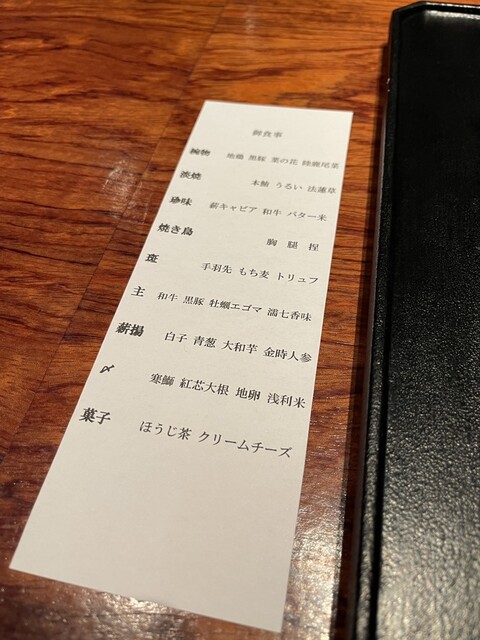 御食事
椀物 地鶏 黒桜 菜の花
淡焼 本鮪 うるい 法蓮草
珍味 薪キャビア 和牛 バター米
焼き鳥 胸 腿 捏
斑 手羽先 もち麦 トリュフ
主 和牛 黒豚 牡蠣エゴマ 濡七香味
薪揚 白子 青葱 大和芋 金時人参
〆 寒鰤 紅芯大根 地卵 浅利米
菓子 ほうじ茶 クリームチーズ